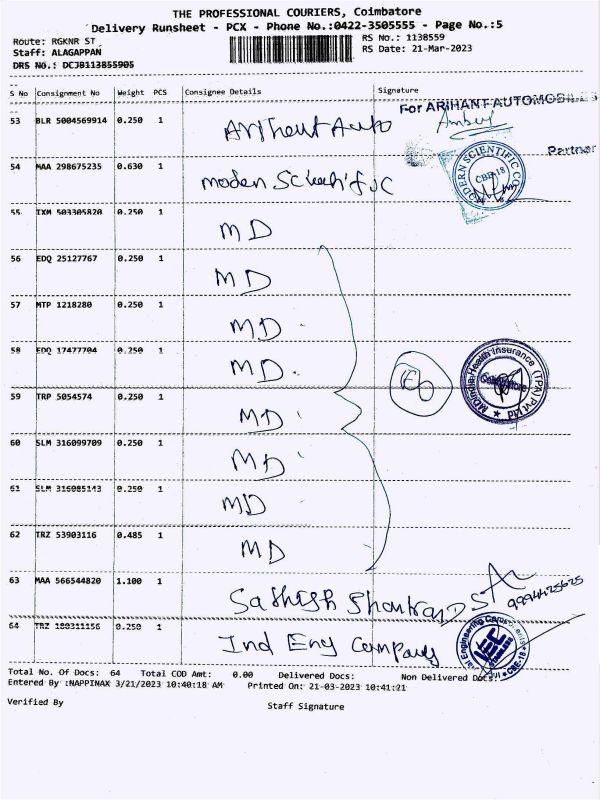 THE PROFESSIONAL COURIERS, Coimbatore
Delivery Runsheet - PCX - Phone No.:0422-3505555 - Page No.:5
Route: RGKNR ST
RS No.: 1138559
Staff: ALAGAPPAN
RS Date: 21-Mar-2023
DRS No.: DCJB113855905
S No Consignment No Weight PCS Consignee Details Signature
For ARIHANT AUTOMOBILES
53 BLR 5004569914 0.250 1 Arihant Auto
Partner
54 MAA 298675235 0.630 1 Moden Scientific
MODERN SCIENTIFIC CO
CBE-18
55 IXM 503305820 0.250 1 MD
56 EDQ 25127767 0.250 1 MD
57 MTP 1218280 0.250 1 MD
58 EDQ 17477704 0.250 1 MD
MDIndia Health Insurance (TPA) Pvt Ltd
Coimbatore
59 TRP 5054574 0.250 1 MD
60 SLM 316099709 0.250 1 MD
61 SLM 316085143 0.250 1 MD
62 TRZ 53903116 0.485 1 MD
63 MAA 566544820 1.100 1 Sathish Shankran D S
64 TRZ 180311156 0.250 1 Ind Eng Company
CBE-18
Total No. Of Docs: 64 Total COD Amt: 0.00 Delivered Docs: Non Delivered Docs:
Entered By :NAPPINAX 3/21/2023 10:40:18 AM Printed On: 21-03-2023 10:41:21
Verified By
Staff Signature